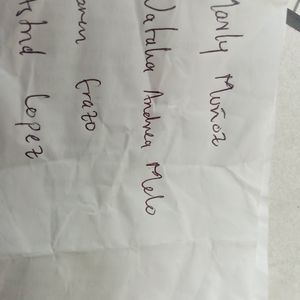 Marly Muñoz
Natalia Andrea Melo
aren Erazo
Lopez